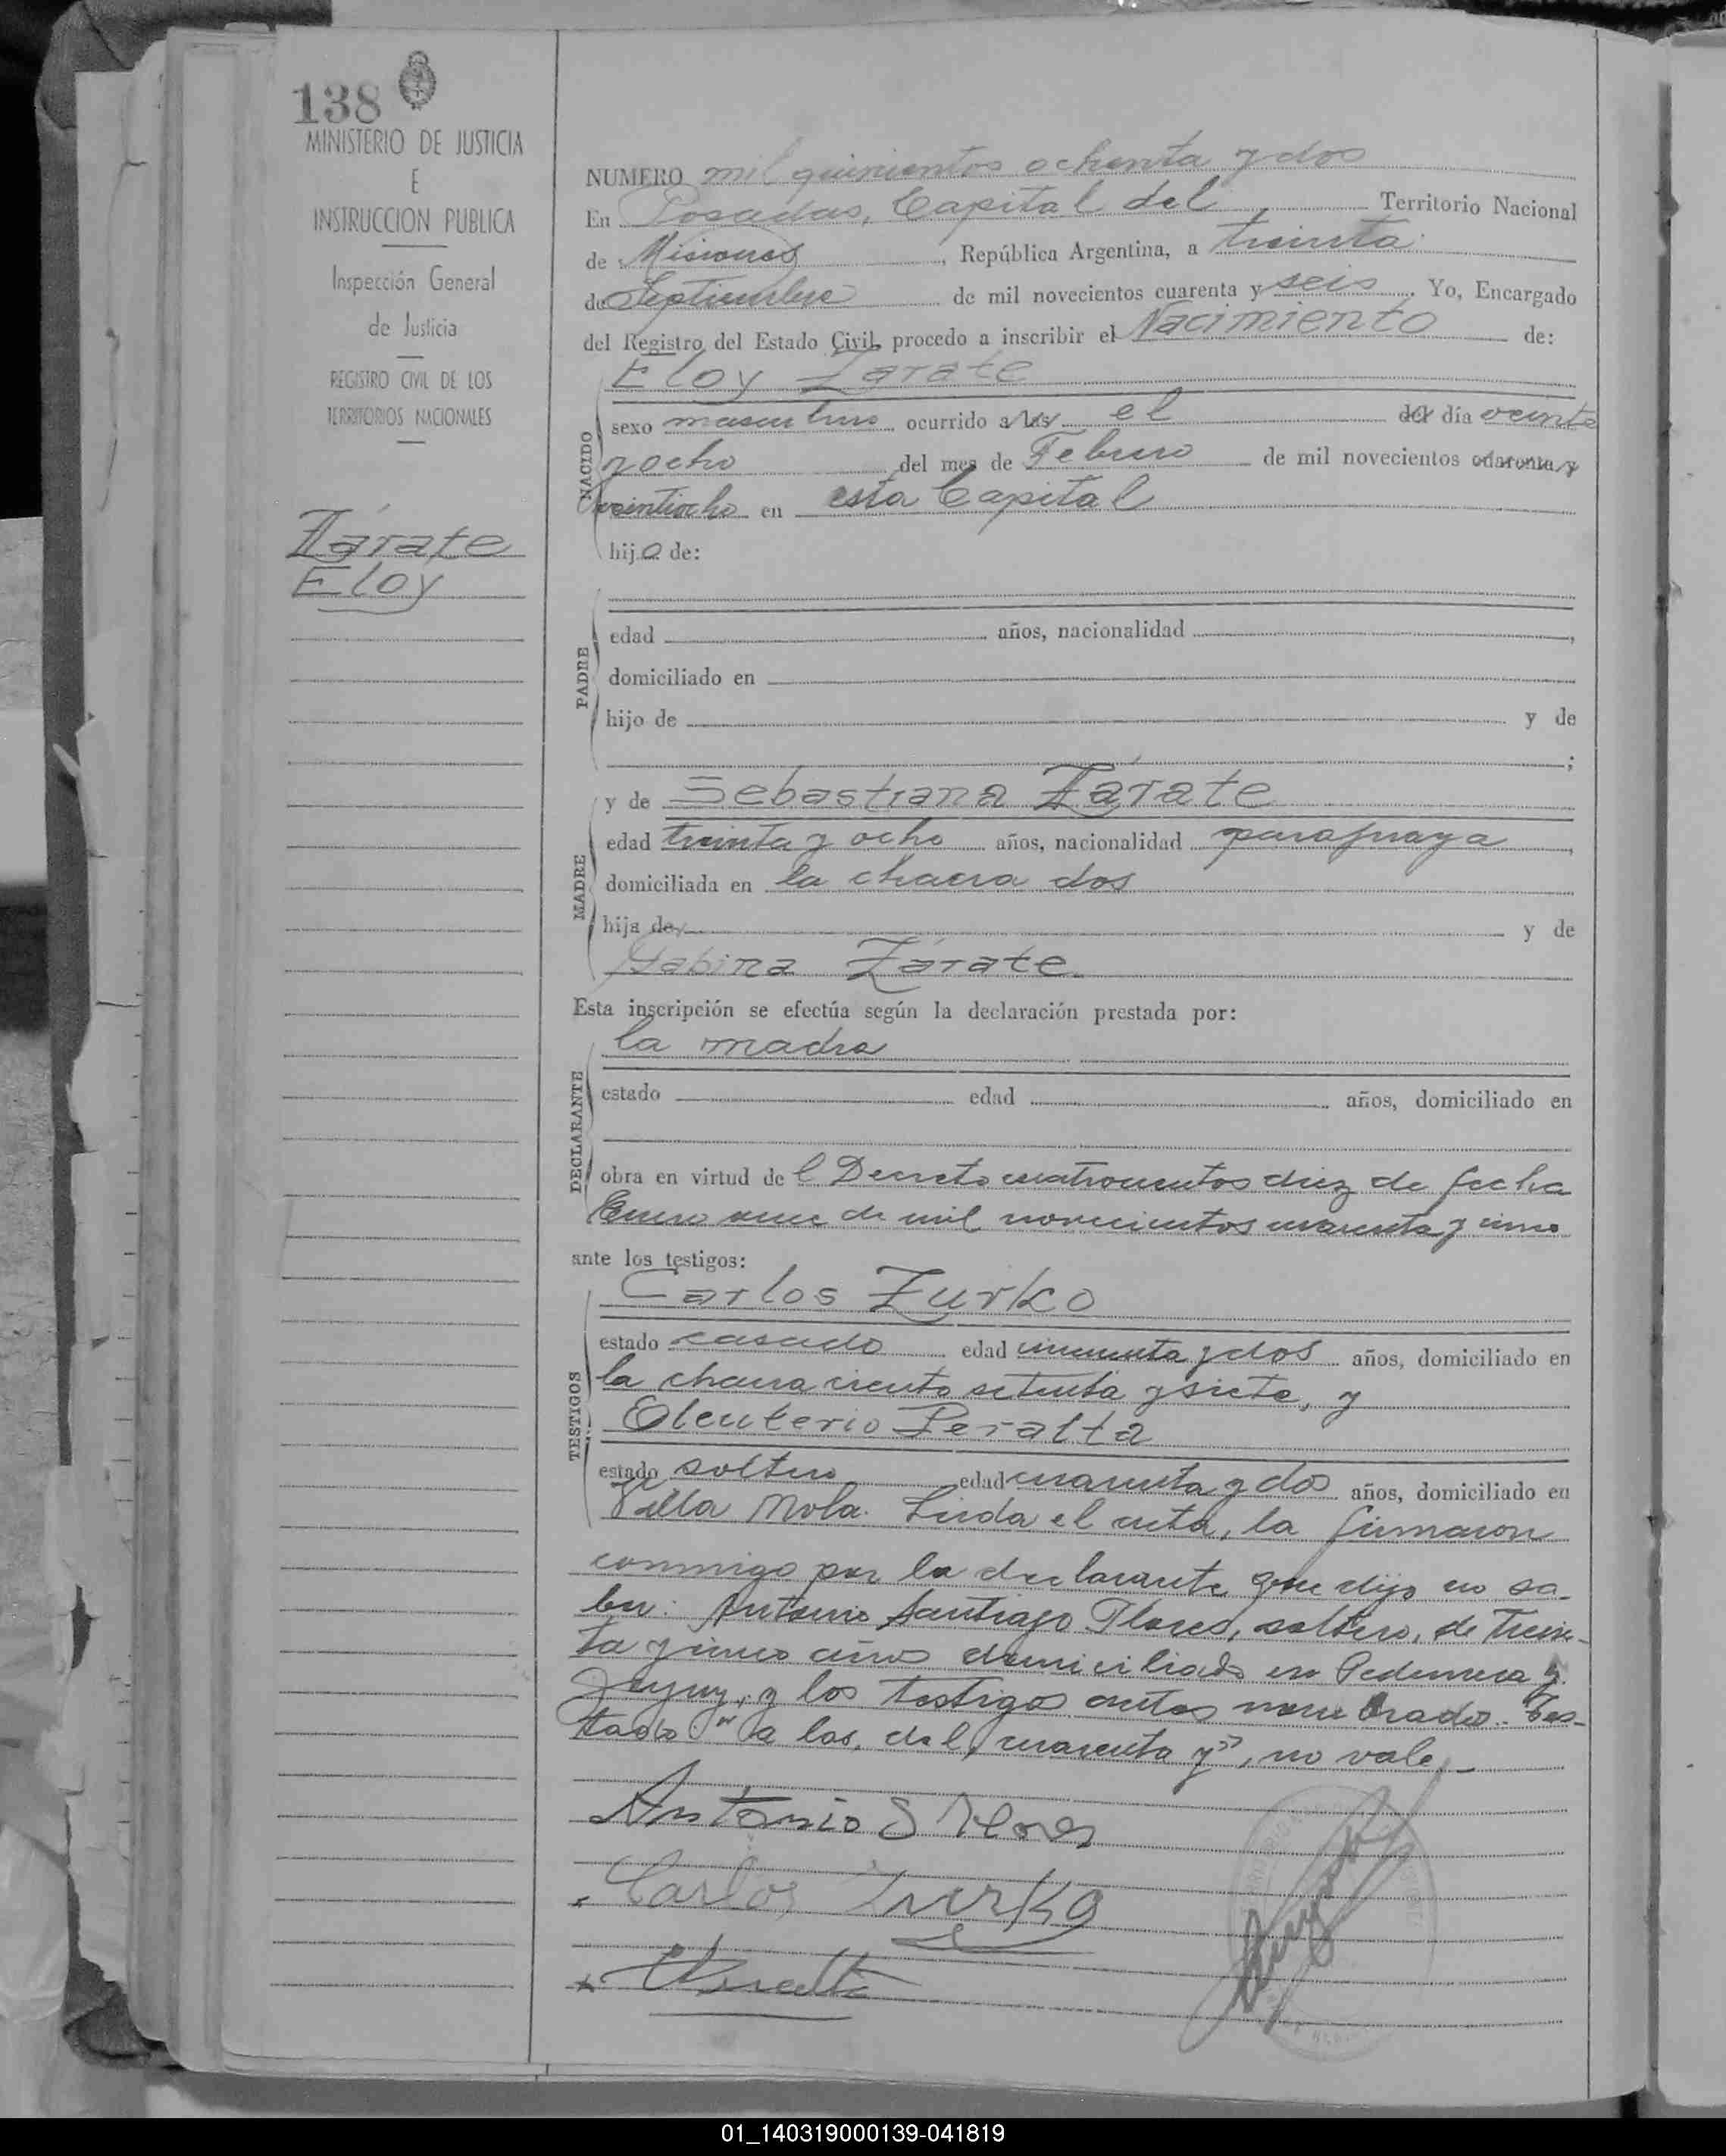 138
MINISTERIO DE JUSTICIA
E
INSTRUCCION PUBLICA
Inspección General
de Justicia
REGISTRO CIVIL DE LOS
TERRITORIOS NACIONALES
Zárate
Eloy
NUMERO mil quinientos ochenta y dos
En Posadas, Capital del Territorio Nacional
de Misiones, República Argentina, a treinta
de Septiembre de mil novecientos cuarenta y seis. Yo, Encargado
del Registro del Estado Civil, procedo a inscribir el Nacimiento de:
Eloy Zarate
NACIDO
sexo masculino ocurrido a las el del día veinte
y ocho del mes de Febrero de mil novecientos cuarenta y
veintiocho en esta Capital
hijo de:
PADRE
edad años, nacionalidad ,
domiciliado en
hijo de y de
;
MADRE
y de Sebastiana Zárate
edad treinta y ocho años, nacionalidad paraguaya,
domiciliada en la chacra dos
hija de y de
Gabina Zárate.
Esta inscripción se efectúa según la declaración prestada por:
DECLARANTE
la madre
estado edad años, domiciliado en
obra en virtud del Decreto cuatrocientos diez de fecha
Enero once de mil novecientos cuarenta y cinco
ante los testigos:
TESTIGOS
Carlos Zurko
estado casado edad cincuenta y dos años, domiciliado en
la chacra ciento setenta y siete, y
Eleuterio Peralta
estado soltero edad cuarenta y dos años, domiciliado en
Villa Mola. Leida el acta, la firmaron
conmigo por la declarante que dijo no sa-
ber: Antonio Santiago Flores, soltero, de trein-
ta y cinco años domiciliado en Pedernera y
Jujuy, y los testigos antes nombrados. Tes-
tado: "a las, del, cuarenta y", no vale.-
Antonio S Flores
Carlos Zurko
01_140319000139-041819